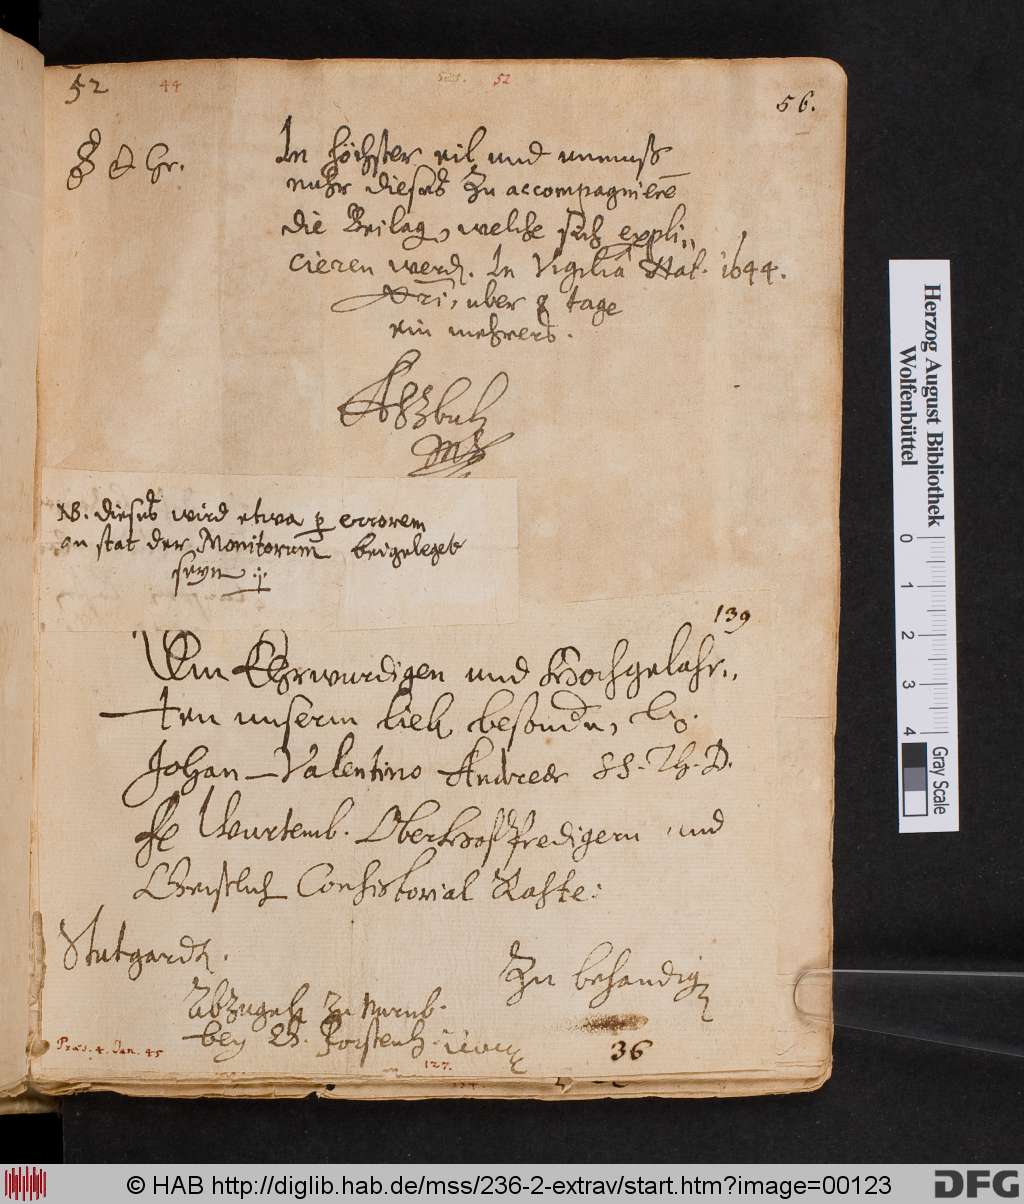 52
44
52
56.
In höchster eil und unmuß
nuhr dieses zu accompagnierē
die Beilag, welche sich expli„
cieren werdē. In Vigilia Nat. 1644.
Xri, uber 8 tage
ein mehrers.
AHzbuH
mp
NB. dieses wird etwa p errorem
an stat der Monitorum beigelegt
seyn
139
Dem Ehrwurdigen und Hochgelahr„
ten unserm lieb besondn,
Johan Valentino Andreæ SS. Th. D.
Wurtemb. OberHofPredigern und
Geistlich Consistorial Rahte:
Stutgardt.
Zu behandig
Abzugeb zu Nurnb.
bey H. Forstenh.
Præs. 4. Jan. 45
36
127.
Herzog August Bibliothek
Wolfenbüttel
0 1 2 3 4
Gray Scale
© HAB http://diglib.hab.de/mss/236-2-extrav/start.htm?image=00123
DFG